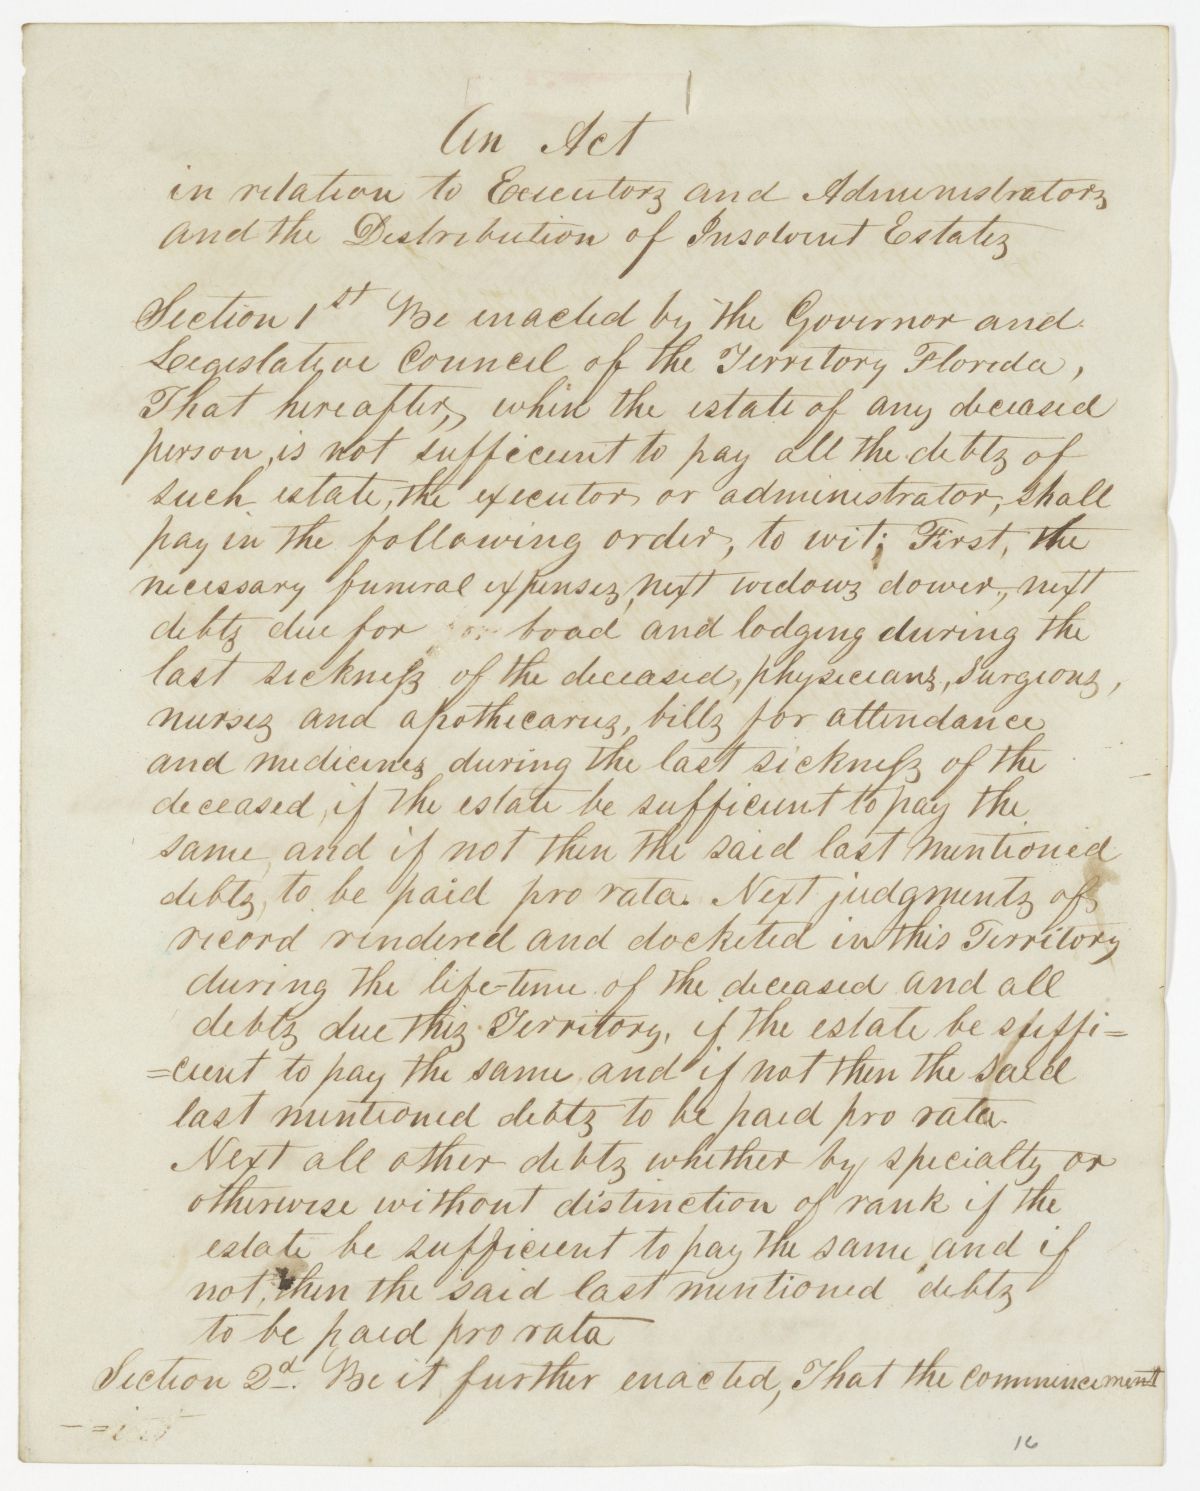 An Act
in relation to Executors and Administrators
and the Distribution of Insolvent Estates
Section 1st Be enacted by the Governor and
Legislative Council of the Territory Florida,
That hereafter, when the estate of any deceased
person, is not sufficeunt to pay all the debts of
such estate, the executor or administrator, shall
pay in the following order, to wit; First, the
necessary funeral expenses, next widows dower, next
debts due for boad and lodging during the
last sickness of the deceased, physicians, surgeons,
nurses and apothecaries, bills for attendance
and medicines during the last sickness of the
deceased, if the estate be sufficient to pay the
same, and if not then the said last mentioned
debts, to be paid pro rata. Next judgments of
record rendered and docketed in this Territory
during the life-time of the deceased and all
debts due this Territory, if the estate be suffi=
=cient to pay the same and if not then the said
last mentioned debts to be paid pro rata.
Next all other debts whether by specialty or
otherwise without distinction of rank if the
estate be sufficient to pay the same, and if
not, then the said last mentioned debts
to be paid pro rata
Section 2d. Be it further enacted, That the commencement
16